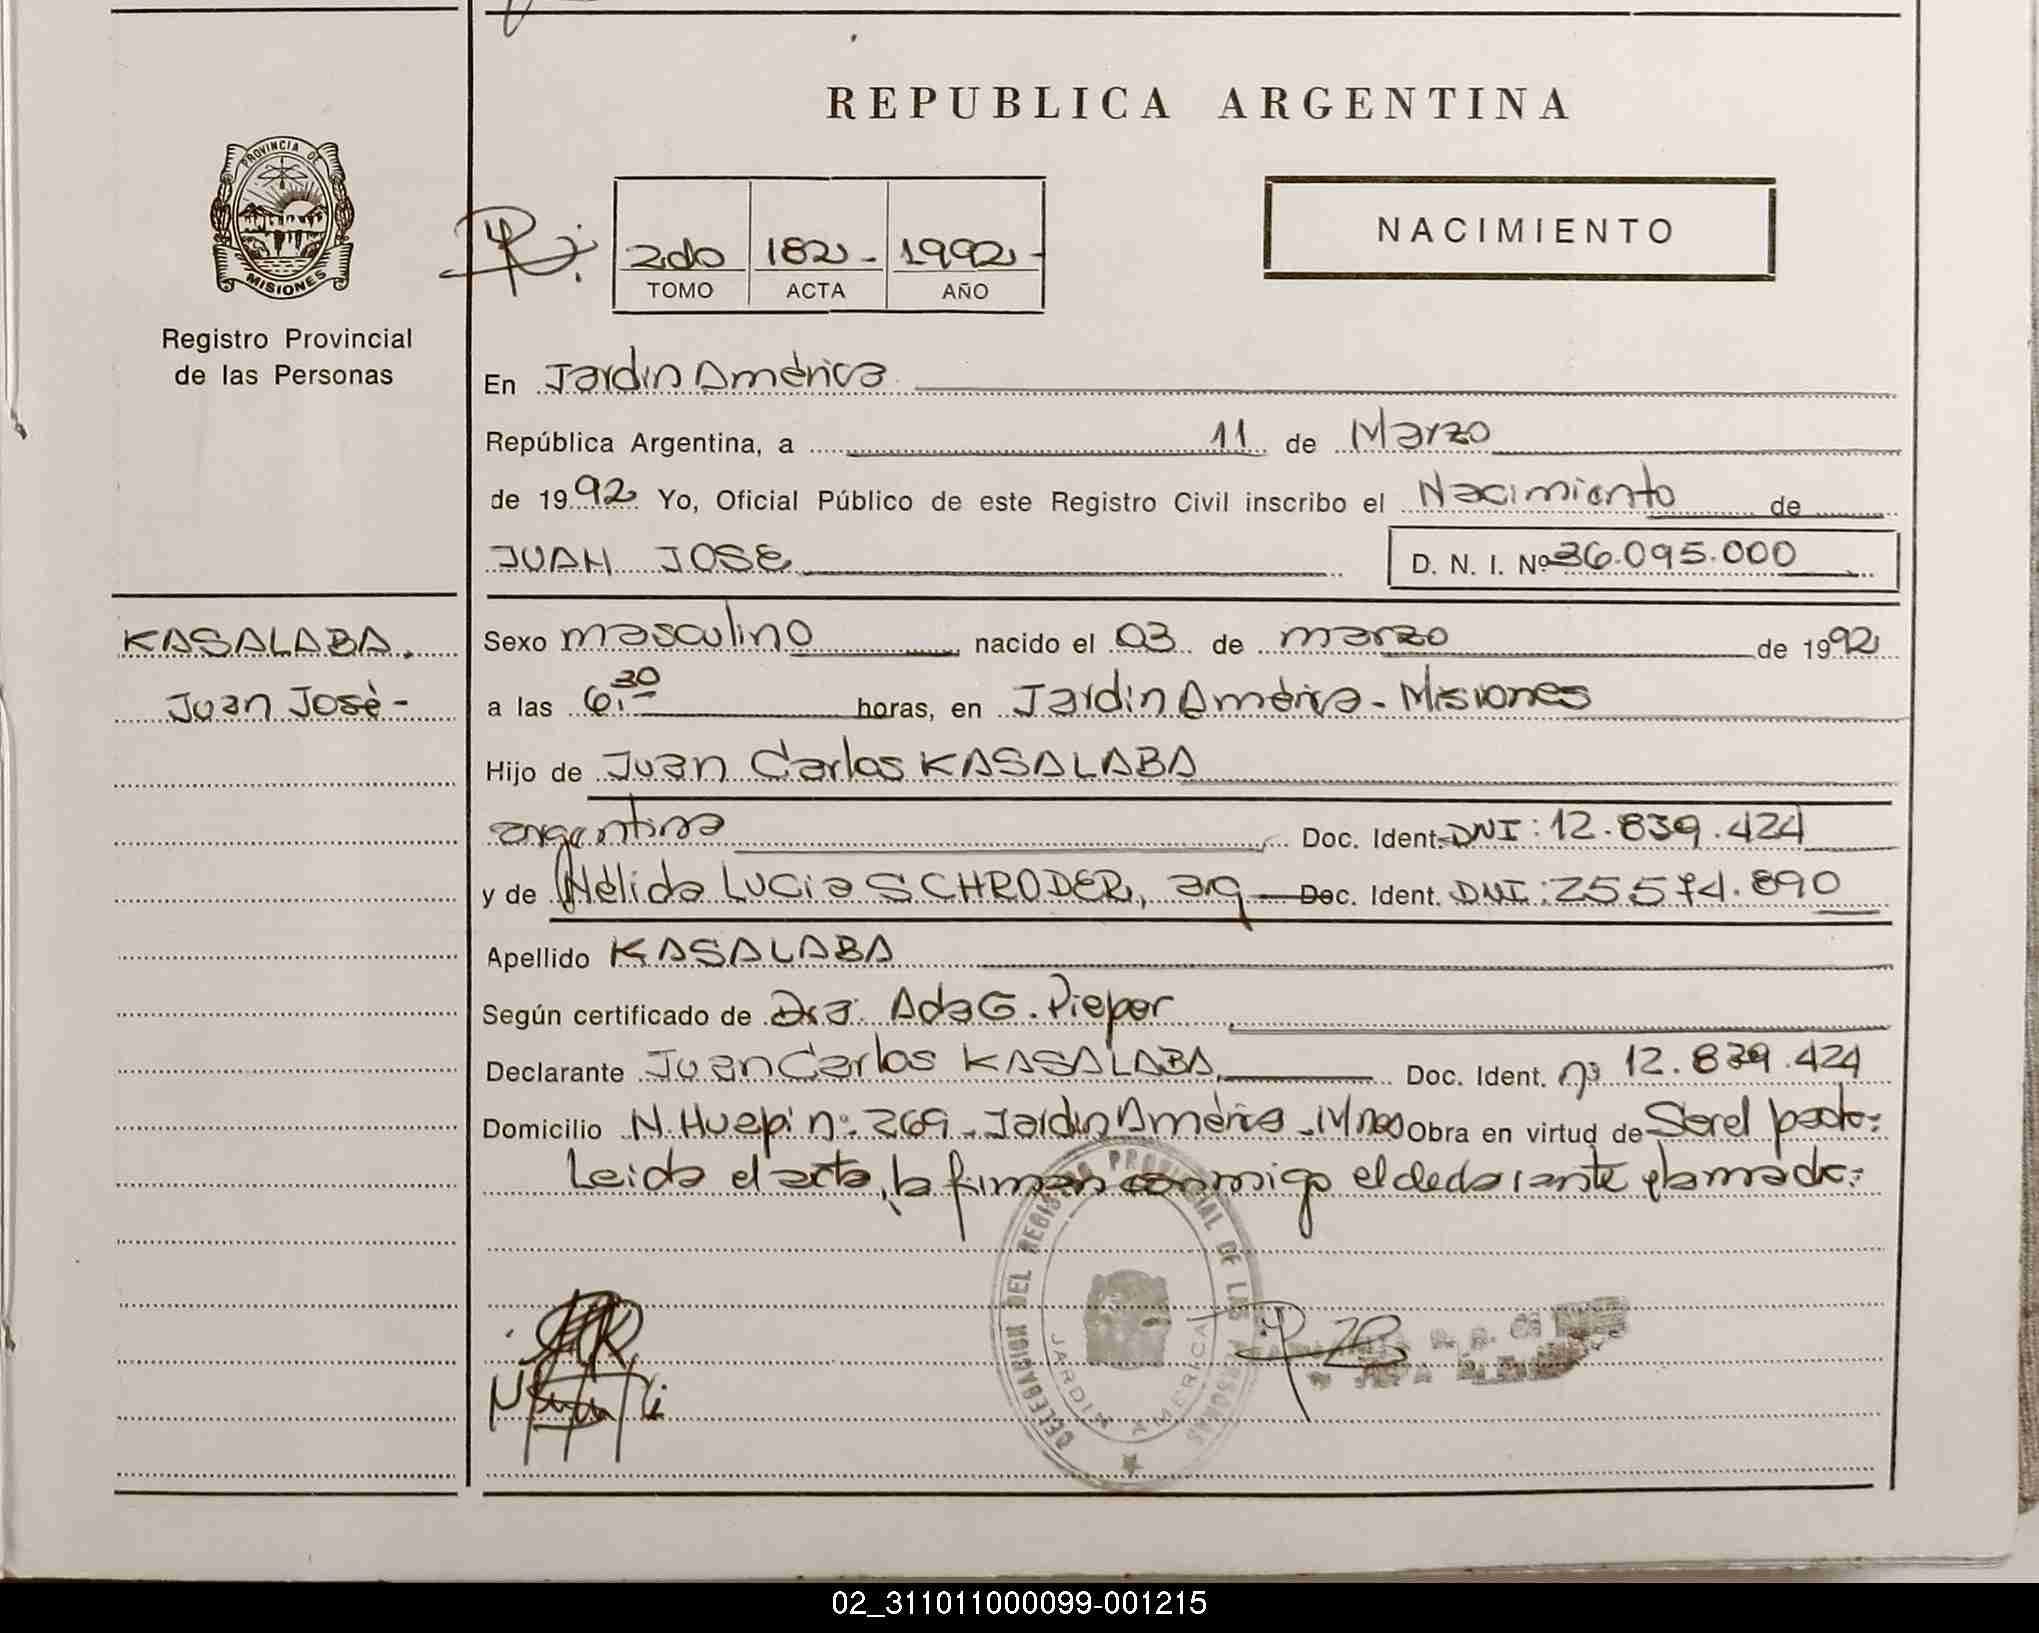 REPUBLICA ARGENTINA
PROVINCIA DE
MISIONES
Registro Provincial
de las Personas
2do 182- 1992-
TOMO ACTA AÑO
NACIMIENTO
En Jardín América
República Argentina, a 11 de Marzo
de 1992 Yo, Oficial Público de este Registro Civil inscribo el Nacimiento de
JUAN JOSE D. N. I. Nº 36.095.000
KASALABA.
Juan José-
Sexo masculino nacido el 03 de marzo de 1992
a las 6:30 horas, en Jardín América - Misiones
Hijo de Juan Carlos KASALABA
argentina Doc. Ident. DNI: 12.839.424
y de Nélida Lucia SCHRODER, arg Doc. Ident. DNI: 25.574.890
Apellido KASALABA
Según certificado de Dra: Ada G. Pieper
Declarante Juan Carlos KASALABA, Doc. Ident. nº 12.839.424
Domicilio N. Huapi nº: 269 - Jardín América - Mnes Obra en virtud de Ser el padre:
Leida el acta, la firman conmigo el declarante y la madre:
DELEGACION DEL REGISTRO PROVINCIAL DE LAS PERSONAS
JARDIN AMERICA
02_311011000099-001215